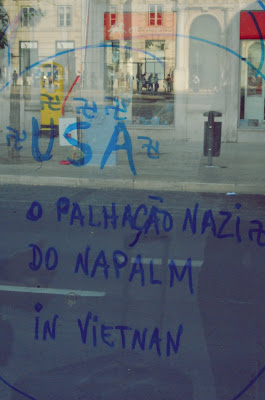 USA
O PALHAÇÃO NAZI
DO NAPALM
IN VIETNAN